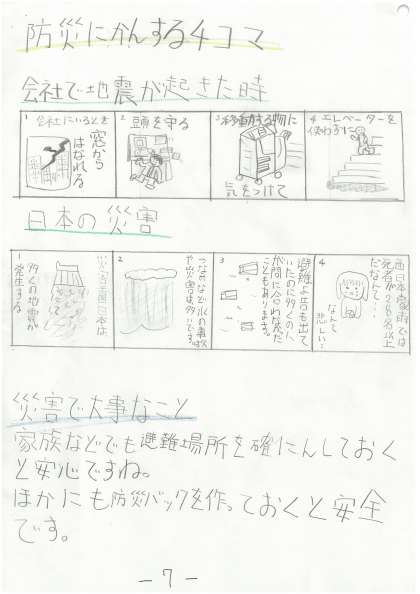 防災にかんする4コマ
会社で地震が起きた時
1 会社にいるとき
窓から
はなれる
2 頭を守る
3 移動する物に
気をつけて
4 エレベーターを
使わずに
日本の災害
1
災害大国日本は、
多くの地震が
発生する
2
つなみなど水の事故
や災害は多いです。
3
避難よ告も出て
いたのに多くの人
が間に合わなかた
こともあります。
4
西日本豪雨では
死者が200名以上
だなんて…
なんて
悲しい!
災害で大事なこと
家族などでも避難場所を確にんしておく
と安心ですね。
ほかにも防災バックを作っておくと安全
です。
－7－